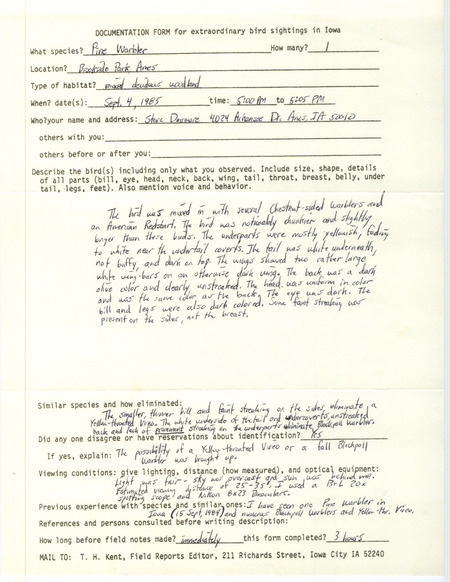 DOCUMENTATION FORM for extraordinary bird sightings in Iowa
What species? Pine Warbler How many? 1
Location? Brookside Park, Ames
Type of habitat? mixed deciduous woodland
When? date(s): Sept. 4, 1985 time: 5:00 PM to 5:05 PM
Who?your name and address: Steve Dinsmore 4024 Arkansas Dr. Ames, IA 50010
others with you:
others before or after you:
Describe the bird(s) including only what you observed. Include size, shape, details
of all parts (bill, eye, head, neck, back, wing, tail, throat, breast, belly, under
tail, legs, feet). Also mention voice and behavior.
The bird was mixed in with several Chestnut-sided Warblers and
an American Redstart. The bird was noticeably chunkier and slightly
longer than these birds. The underparts were mostly yellowish, fading
to white near the undertail coverts. The tail was white underneath,
not buffy, and dark on top. The wings showed two rather large
white wing-bars on an otherwise dark wing. The back was a dark
olive color and clearly unstreaked. The head was uniform in color
and was the same color as the back. The eye was dark. The
bill and legs were also dark colored. Some faint streaking was
present on the sides, not the breast.
Similar species and how eliminated:
The smaller, thinner bill and faint streaking on the sides eliminate a
Yellow-throated Vireo. The white underside of the tail and undercoverts, unstreaked
back and lack of streaking on the underparts eliminate Blackpoll Warbler.
Did any one disagree or have reservations about identification? Yes
If yes, explain: The possibility of a Yellow-throated Vireo or a fall Blackpoll
Warbler was brought up.
Viewing conditions: give lighting, distance (how measured), and optical equipment:
Light was fair - sky was overcast and sun was behind me.
Estimated viewing distance of 35'-55'. I used a 20x
spotting scope and Nikon 8x23 Binoculars.
Previous experience with species and similar ones: I have seen one Pine Warbler in
Iowa (15 Sept, 1984) and numerous Blackpoll Warblers and Yellow-thr. Vireo.
References and persons consulted before writing description:
How long before field notes made? immediately this form completed? 3 hours
MAIL TO: T. H. Kent, Field Reports Editor, 211 Richards Street, Iowa City IA 52240